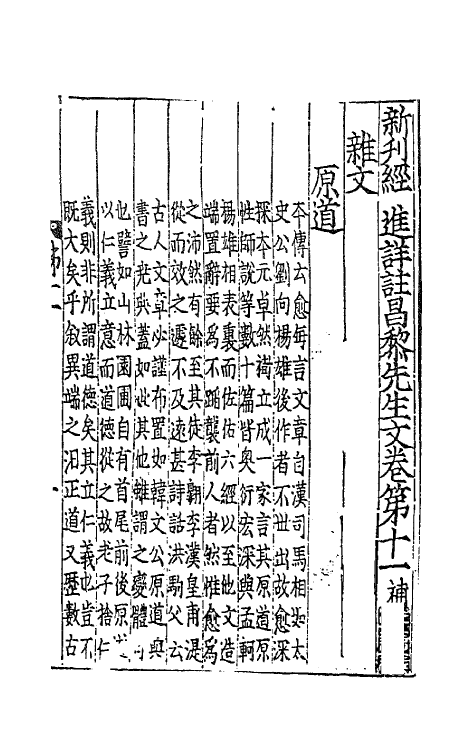 新刊經進詳註昌黎先生文卷第十一 補
雜文
原道
夲傳云愈每言文章自漢司馬相如太
史公劉向楊雄後作者不丗出故愈深
探夲元卓然樹立成一家言其原道原
性師說等數十篇皆奥衍宏深與孟軻
楊雄相表裏而佐佑六經以至他文造
端置辭要爲不蹈襲前人者然惟愈爲
之沛然有餘至其徒李翱李漢皇甫湜
從而效之遽不及逺甚詩話洪駒父云
古人文章必謹布置如韓文公原道與
書之尭典蓋如此其他雖謂之變體
也譬如山林園圃自有首尾前後原
以仁義立意而道德從之故老子捨仁
義則非所謂道德矣其立仁義也豈不
旣大矣乎叙異端之汩正道又歴數古